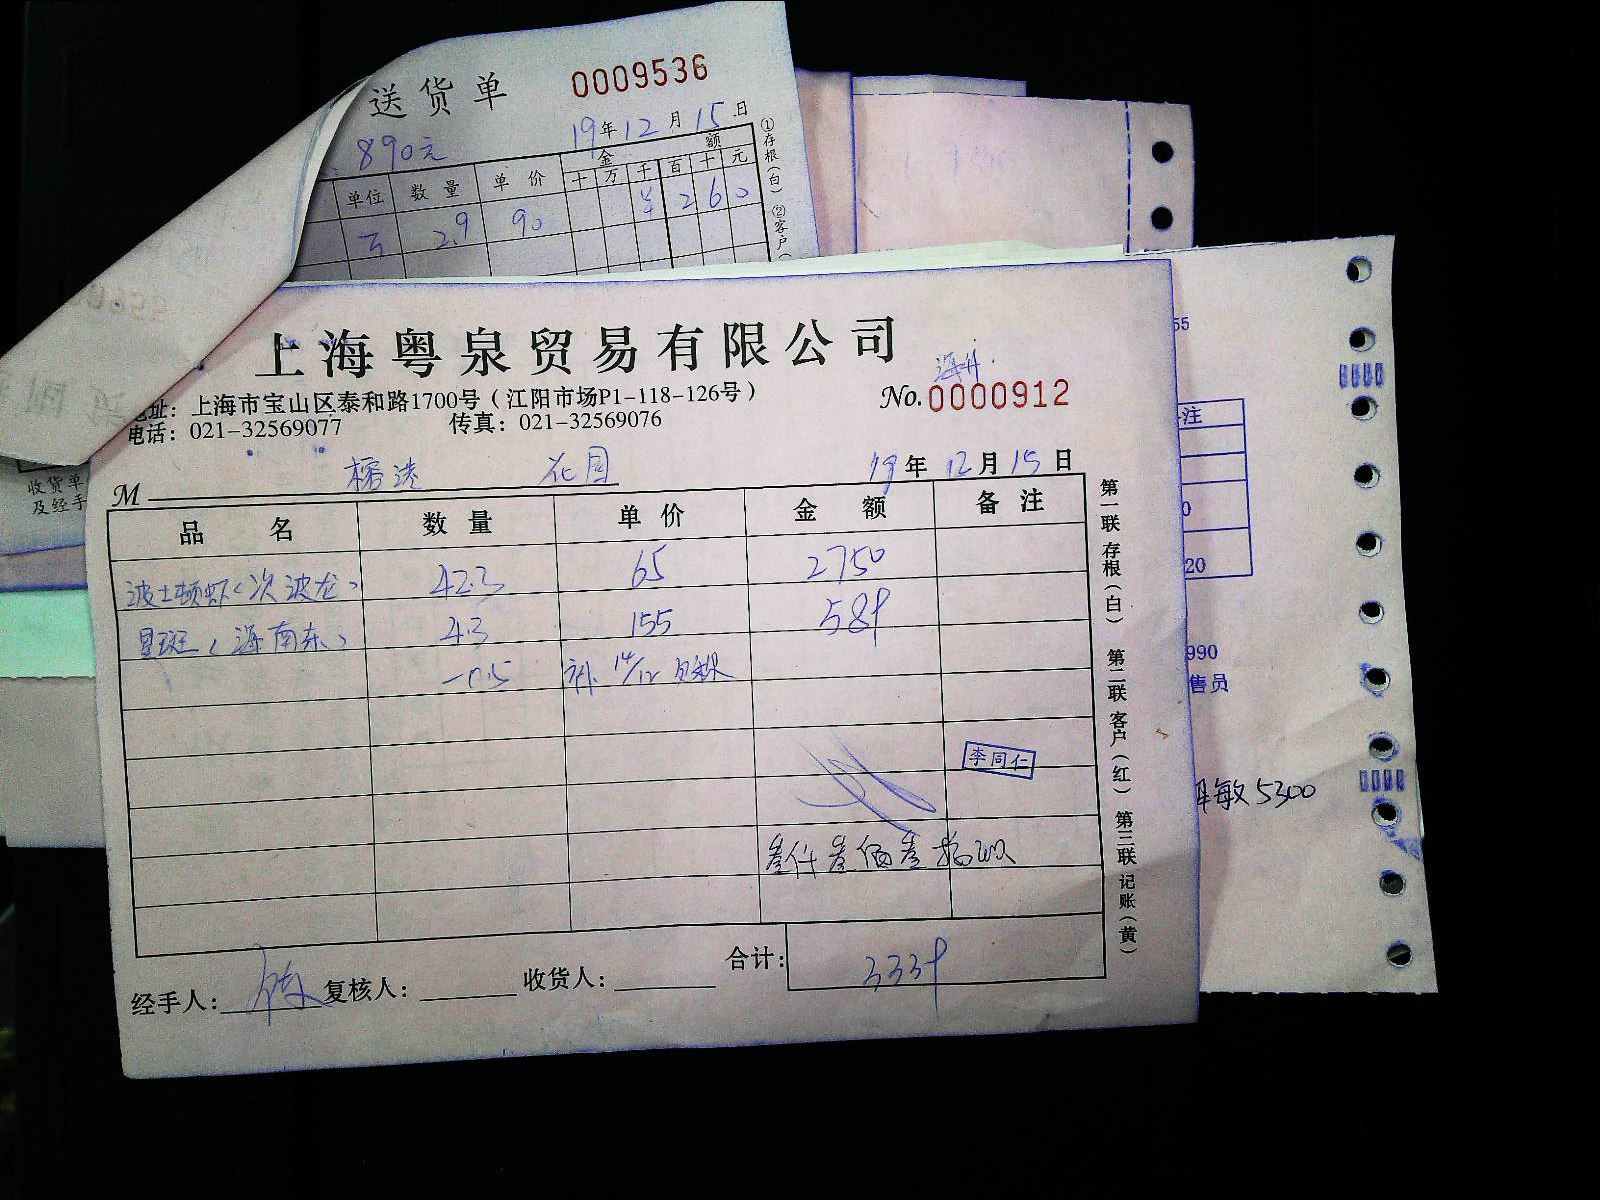 送货单 0009536
19年12月15日
890元
金额
单位 数量 单价 十万千百十元
2.9 90 ¥260
①存根(白) ②客户(
上海粤泉贸易有限公司
地址：上海市宝山区泰和路1700号（江阳市场P1-118-126号）
No.0000912
电话：021-32569077 传真：021-32569076
M 榕港 花园 19年12月15日
品名 数量 单价 金额 备注
波士顿虾(次波龙) 42.3 65 2750
星斑(海南东) 4.3 155 589
-0.5 补 14/12
李同仁
叁仟叁佰叁拾
合计： 3339
经手人： 复核人： 收货人：
第一联 存根（白） 第二联 客户（红） 第三联 记账（黄）
收货单
及经手
55
注
0
20
990
售员
敏 5300